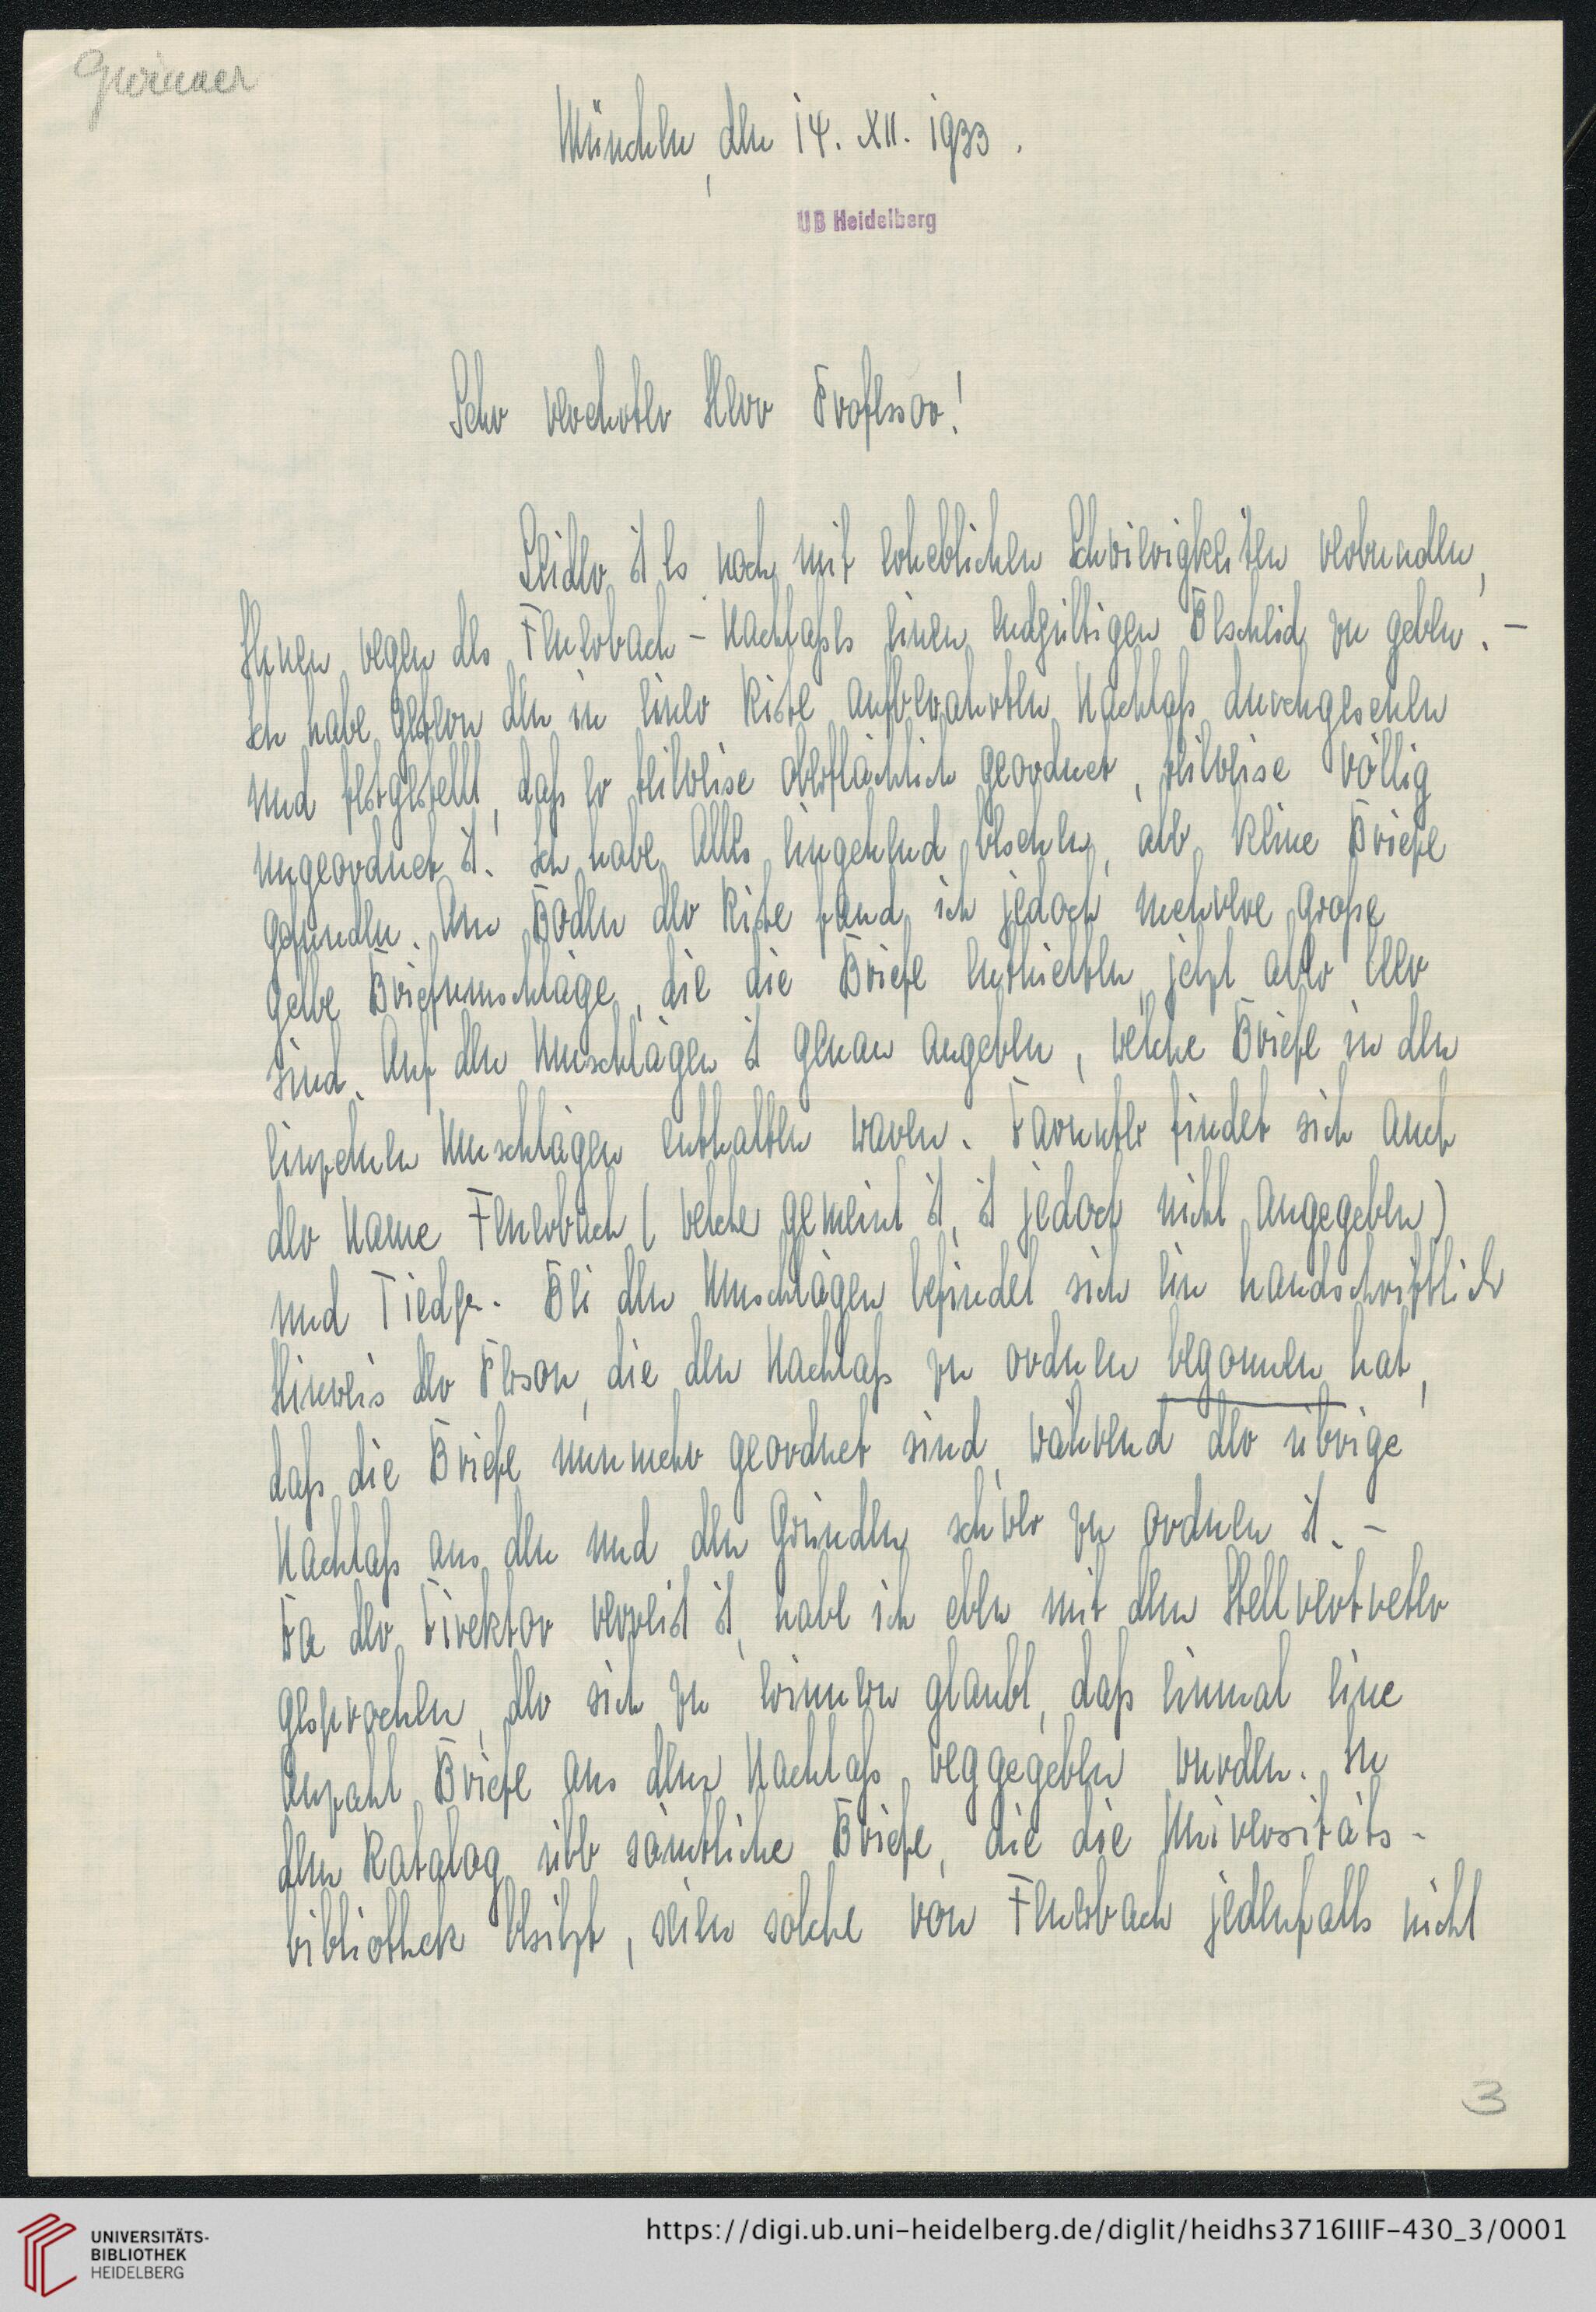 Gwinner
München, den 14. XII. 1933.
UB Heidelberg
Sehr verehrter Herr Professor!
Leider ist es noch mit erheblichen Schwierigkeiten verbunden,
Ihnen wegen des Feuerbach-Nachlaßes einen endgültigen Bescheid zu geben. –
Ich habe gestern den in einer Kiste aufbewahrten Nachlaß durchgesehen
und festgestellt, daß er teilweise oberflächlich geordnet, teilweise völlig
ungeordnet ist. Ich habe alles eingehend besehen, aber keine Briefe
gefunden. Am Boden der Kiste fand ich jedoch mehrere große
gelbe Briefumschläge, die die Briefe enthielten, jetzt aber leer
sind. Auf den Umschlägen ist genau angeben, welche Briefe in den
einzelnen Umschlägen enthalten waren. Darunter findet sich auch
der Name Feuerbach (welcher gemeint ist, ist jedoch nicht angegeben)
und Tiedge. Bei den Umschlägen befindet sich ein handschriftlich
Hinweis der Person, die den Nachlaß zu ordnen begonnen hat,
daß die Briefe nunmehr geordnet sind, während der übrige
Nachlaß aus den und den Gründen schwer zu ordnen ist. –
Da der Direktor verreist ist, habe ich eben mit dem Stellvertreter
gesprochen, der sich zu erinnern glaubt, daß einmal eine
Anzahl Briefe aus dem Nachlaß weggegeben wurden. In
dem Katalog über sämtliche Briefe, die die Universitäts-
bibliothek besitzt, seien solche von Feuerbach jedenfalls nicht
3
UNIVERSITÄTS-
BIBLIOTHEK
HEIDELBERG
https://digi.ub.uni-heidelberg.de/diglit/heidhs3716IIIF-430_3/0001